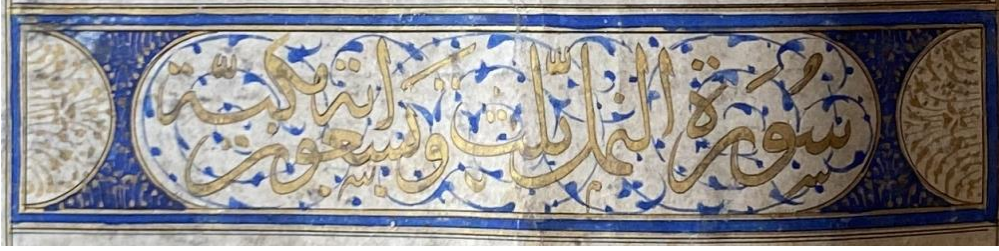 سورة النمل ثلث وتسعون اية مكية